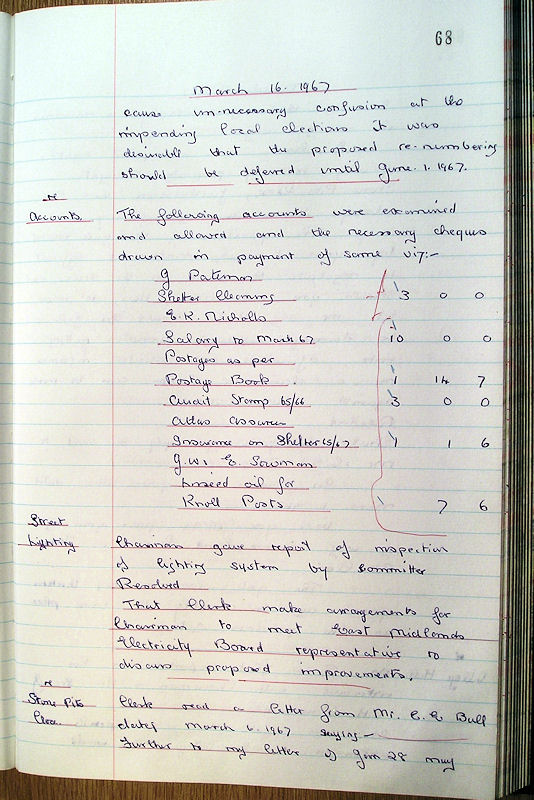 68
March 16. 1967
cause un-necessary confusion at the
impending local elections it was
desirable that the proposed re-numbering
should be deferred until June. 1. 1967.
Accounts.
The following accounts were examined
and allowed and the necessary cheques
drawn in payment of same viz:-
G Pateman
Shelter Cleaning 3 0 0
E.R. Nicholls
Salary to March 67 10 0 0
Postages as per
Postage Book. 1 14 7
Audit Stamp 65/66 3 0 0
Atlas Assurance
Insurance on Shelter 65/67 1 1 6
G.W. & E. Sowman
Linseed oil for
Knoll Posts 7 6
Street
Lighting
Chairman gave report of inspection
of lighting system by Committee
Resolved
That Clerk make arrangements for
Chairman to meet East Midlands
Electricity Board representative to
discuss proposed improvements.
Stone Pits
Clerk read a letter from Mr. E Bull
dated March 6. 1967 saying-
Further to my letter of Jan 28 may